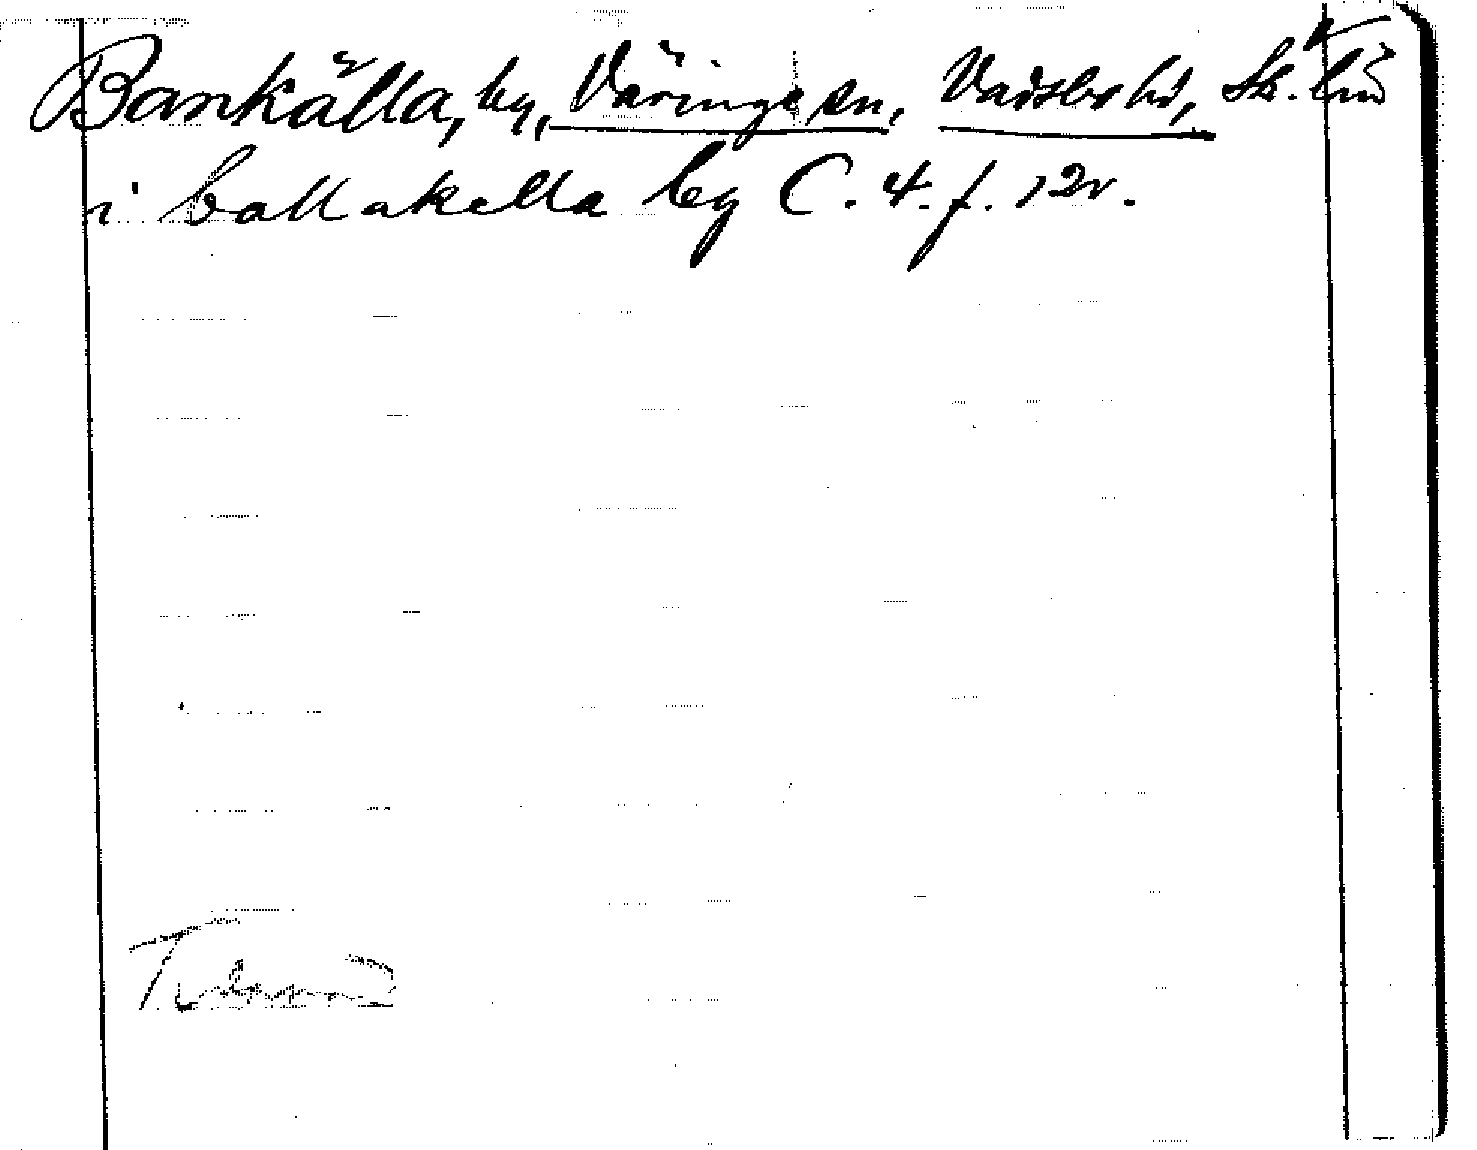 Bankälla, by, Väringe sn, Vadsbo hd, Sk. län
i ballakella by C. 4. f. 12v.